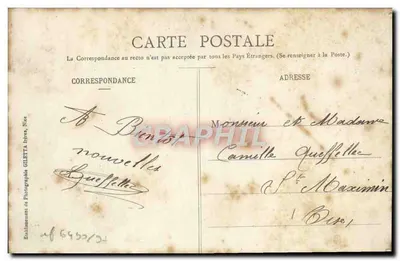 CARTE POSTALE
La Correspondance au recto n'est pas acceptée par tous les Pays Étrangers. (Se renseigner à la Poste.)
CORRESPONDANCE
ADRESSE
A Bientôt
nouvelles
Queffellec
Monsieur et Madame
Camille Queffellec
Ste Maximin
Etablissements de Photographie GILETTA frères, Nice
PHILAPHIL